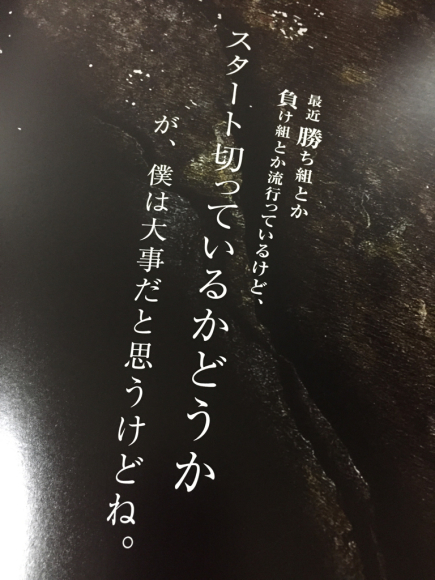 最近 勝ち組とか
負け組とか流行っているけど、
スタート切っているかどうか
が、僕は大事だと思うけどね。